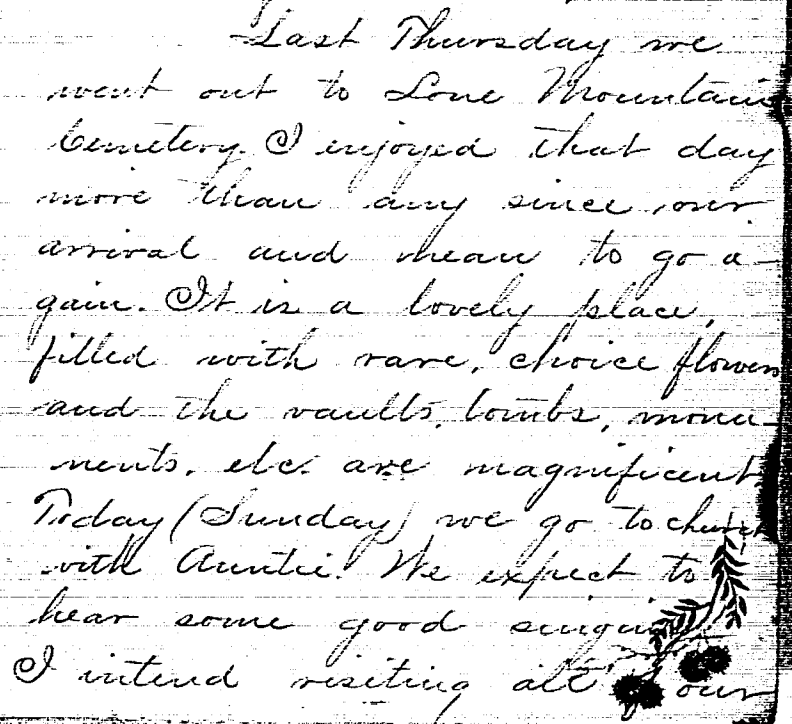 Last Thursday we
went out to Lone Mountain
Cemetery. I enjoyed that day
more than any since our
arrival and mean to go a-
gain. It is a lovely place,
filled with rare, choice flowers
and the vaults, tombs, monu-
ments, etc. are magnificent.
Today (Sunday) we go to church
with Auntie. We expect to
hear some good singing
I intend visiting all our